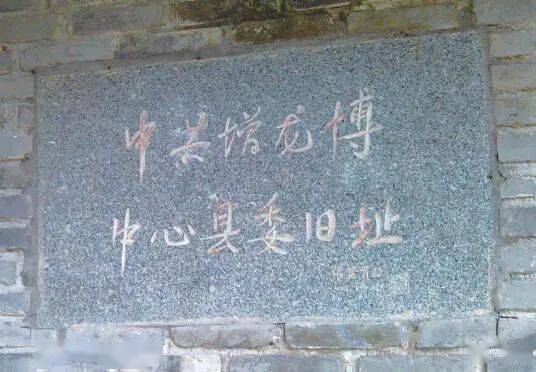 中共增龙博
中心县委旧址